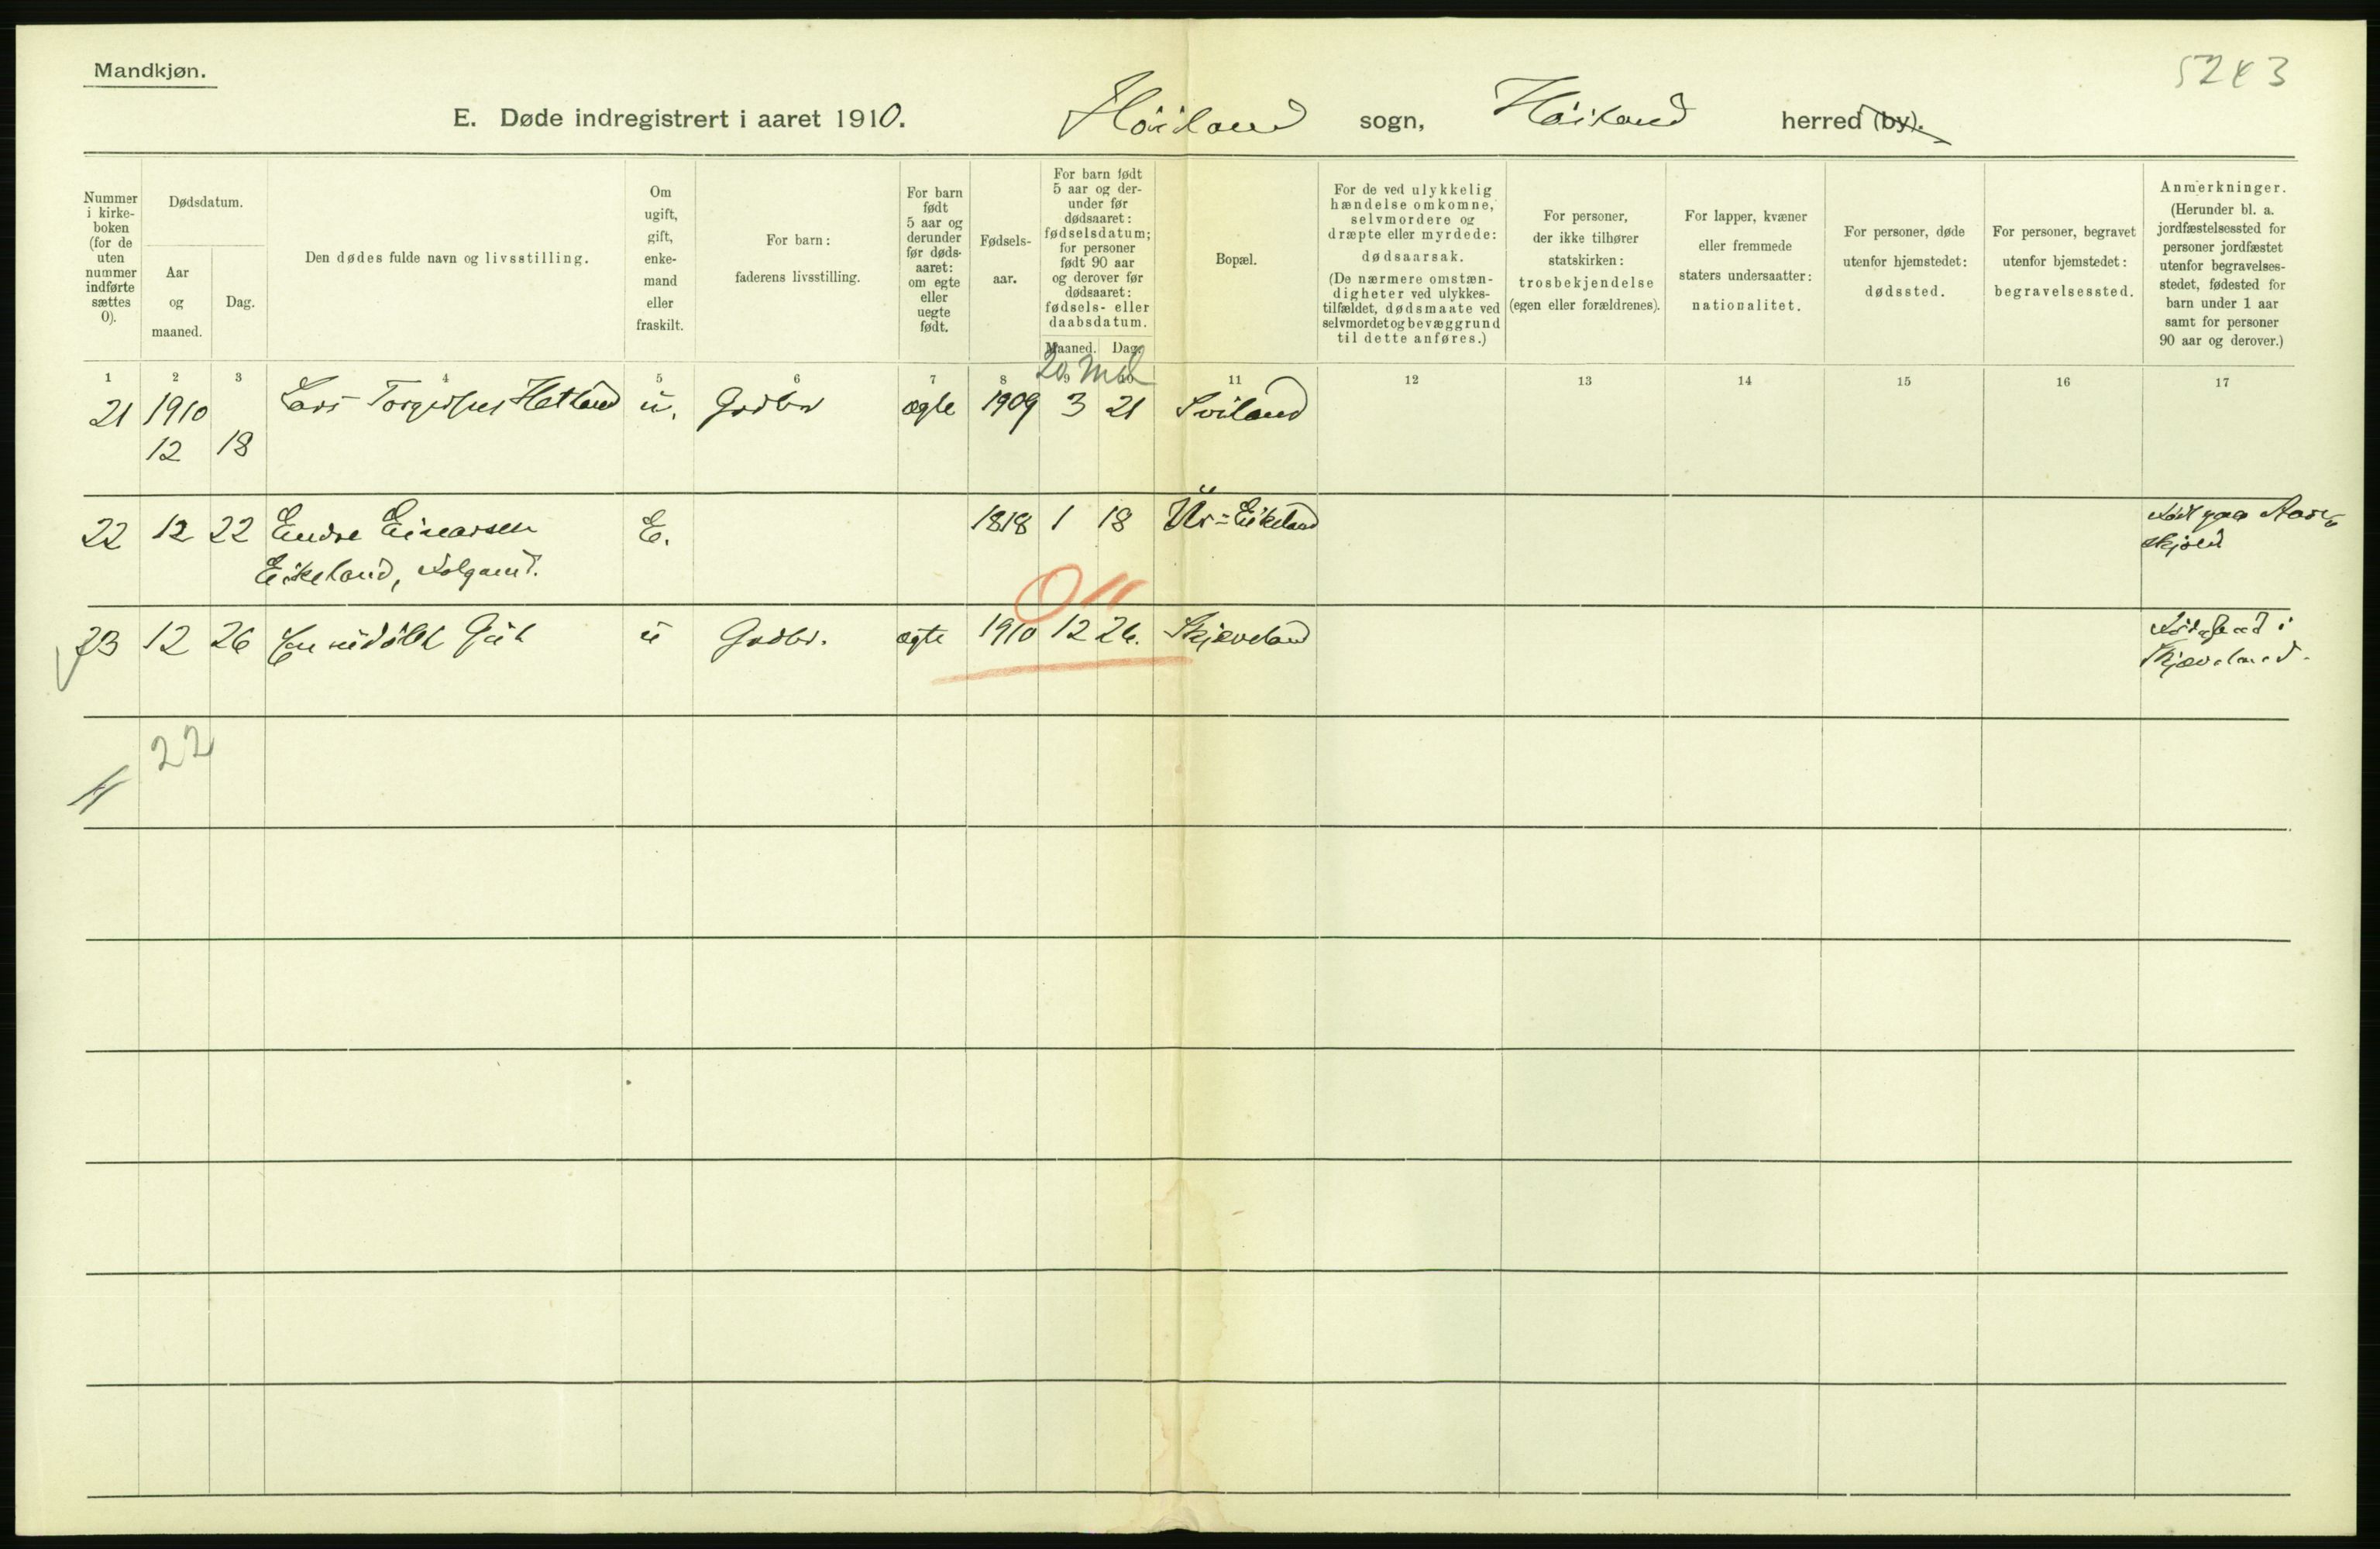 Mandkjøn.
5243
E. Døde indregistrert i aaret 1910. Høiland sogn, Høiland herred (by).
Nummer i kirke-boken (for de uten nummer indførte sættes 0).
Dødsdatum.
Aar og maaned.
Dag.
Den dødes fulde navn og livsstilling.
Om ugift, gift, enke-mand eller fraskilt.
For barn: faderens livsstilling.
For barn født 5 aar og derunder før døds-aaret: om egte eller uegte født.
Fødsels-aar.
For barn født 5 aar og der-under før dødsaaret: fødselsdatum; for personer født 90 aar og derover før dødsaaret: fødsels- eller daabsdatum.
Maaned. Dag.
Bopæl.
For de ved ulykkelig hændelse omkomne, selvmordere og dræpte eller myrdede: dødsaarsak. (De nærmere omstæn-digheter ved ulykkes-tilfældet, dødsmaate ved selvmordet og bevæggrund til dette anføres.)
For personer, der ikke tilhører statskirken: trosbekjendelse (egen eller forældrenes).
For lapper, kvæner eller fremmede staters undersaatter: nationalitet.
For personer, døde utenfor hjemstedet: dødssted.
For personer, begravet utenfor bjemstedet: begravelsessted.
Anmerkninger. (Herunder bl. a. jordfæstelsessted for personer jordfæstet utenfor begravelses-stedet, fødested for barn under 1 aar samt for personer 90 aar og derover.)
1 2 3 4 5 6 7 8 9 10 11 12 13 14 15 16 17
20 Md
21 1910 Lars Torgersen Hetland u. Grdbr ægte 1909 3 21 Sviland
12 18
22 12 22 Endre Einarsen E. 1818 1 18 Ur=Eikeland Født paa Aare-
Eikeland, Folgemd. skjold
0 11
23 12 26 En udøbt Gut u Grdbr. ægte 1910 12 26. Skjæveland Fødested i
Skjæveland.
22